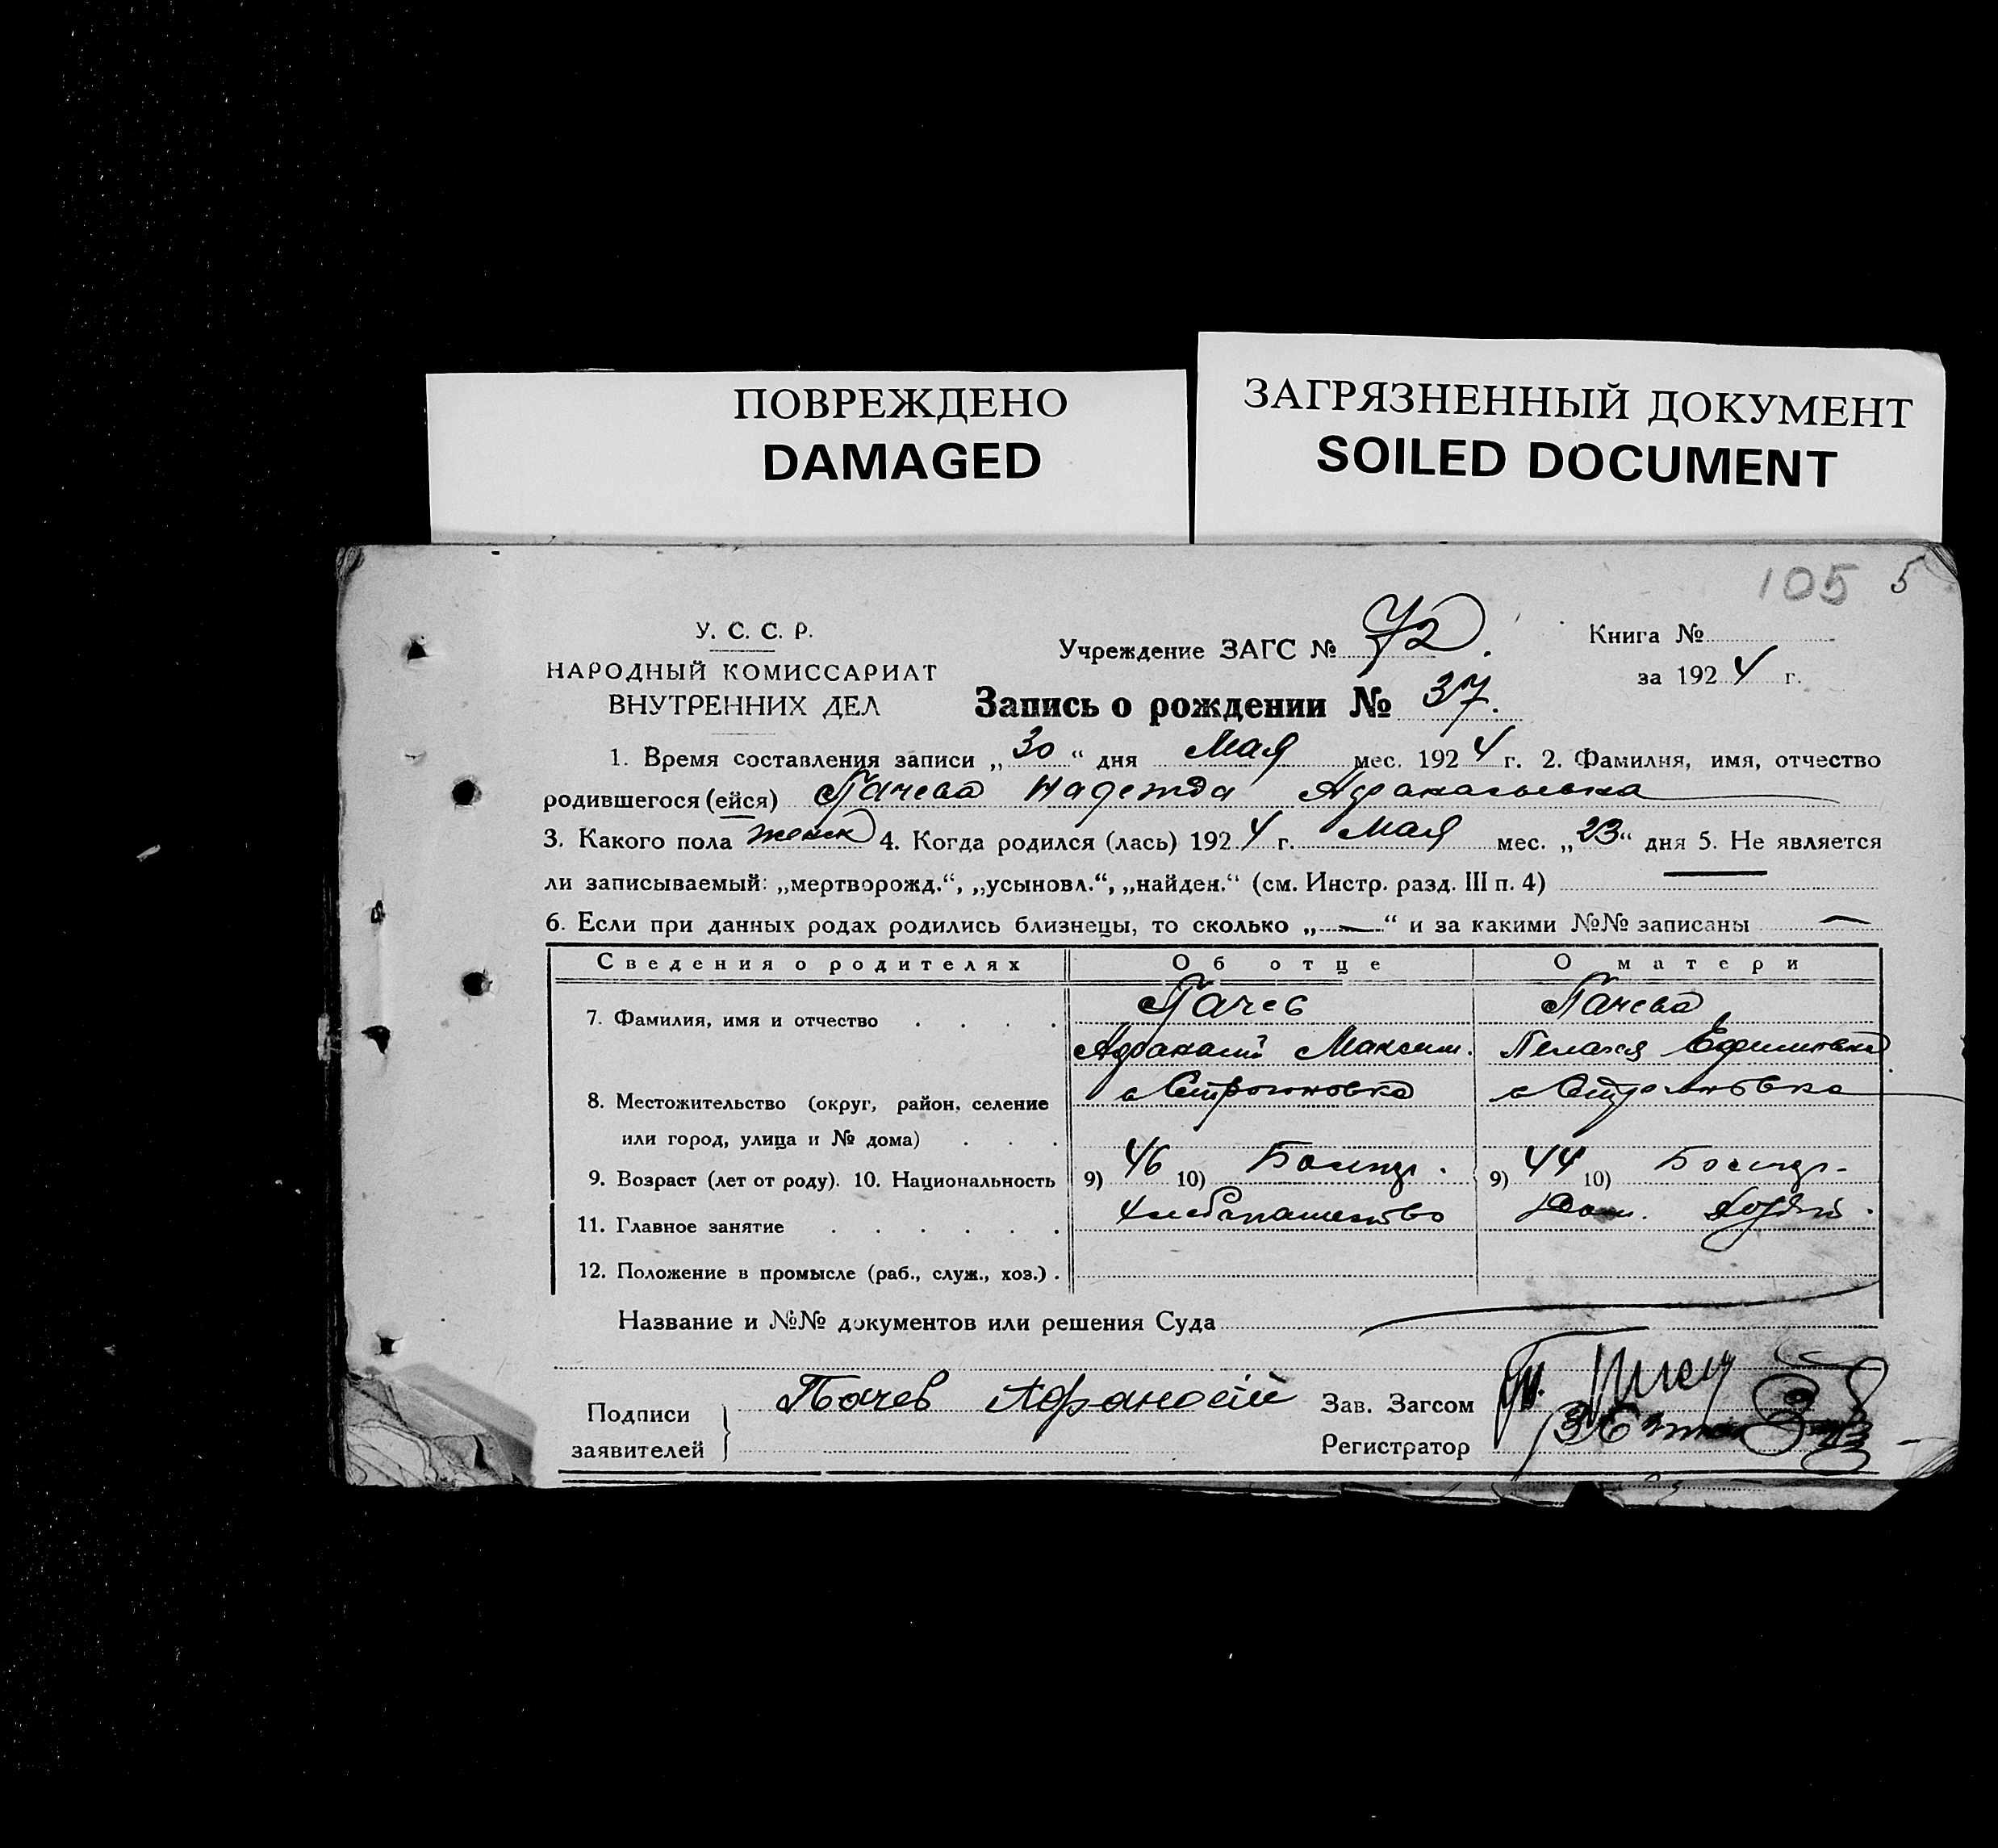 ПОВРЕЖДЕНО
DAMAGED
ЗАГРЯЗНЕННЫЙ ДОКУМЕНТ
SOILED DOCUMENT
105 5
У. С. С. Р.
НАРОДНЫЙ КОМИССАРИАТ
ВНУТРЕННИХ ДЕЛ
Учреждение ЗАГС № 72.
Запись о рождении № 37.
Книга №
за 1924 г.
1. Время составления записи „30“ дня Мая мес. 1924 г. 2. Фамилия, имя, отчество
родившегося (ейся) Пачева Надежда Афанасьевна
3. Какого пола женск 4. Когда родился (лась) 1924 г. Мая мес. „23“ дня 5. Не является
ли записываемый: „мертворожд.“, „усыновл.“, „найден.“ (см. Инстр. разд. III п. 4) —
6. Если при данных родах родились близнецы, то сколько „—“ и за какими №№ записаны —
Сведения о родителях Об отце О матери
7. Фамилия, имя и отчество . . . . Пачев Пачева
Афанасий Максим. Пелагея Ефимовна
8. Местожительство (округ, район, селение
или город, улица и № дома) . . .
9. Возраст (лет от роду). 10. Национальность 9) 46 10) Болгар. 9) 44 10) Болгар.
11. Главное занятие . . . . . . Хлебопашество Дом. хозяй.
12. Положение в промысле (раб., служ., хоз.) .
Название и №№ документов или решения Суда
Подписи
заявителей
Пачев Афанасий
Зав. Загсом
Регистратор